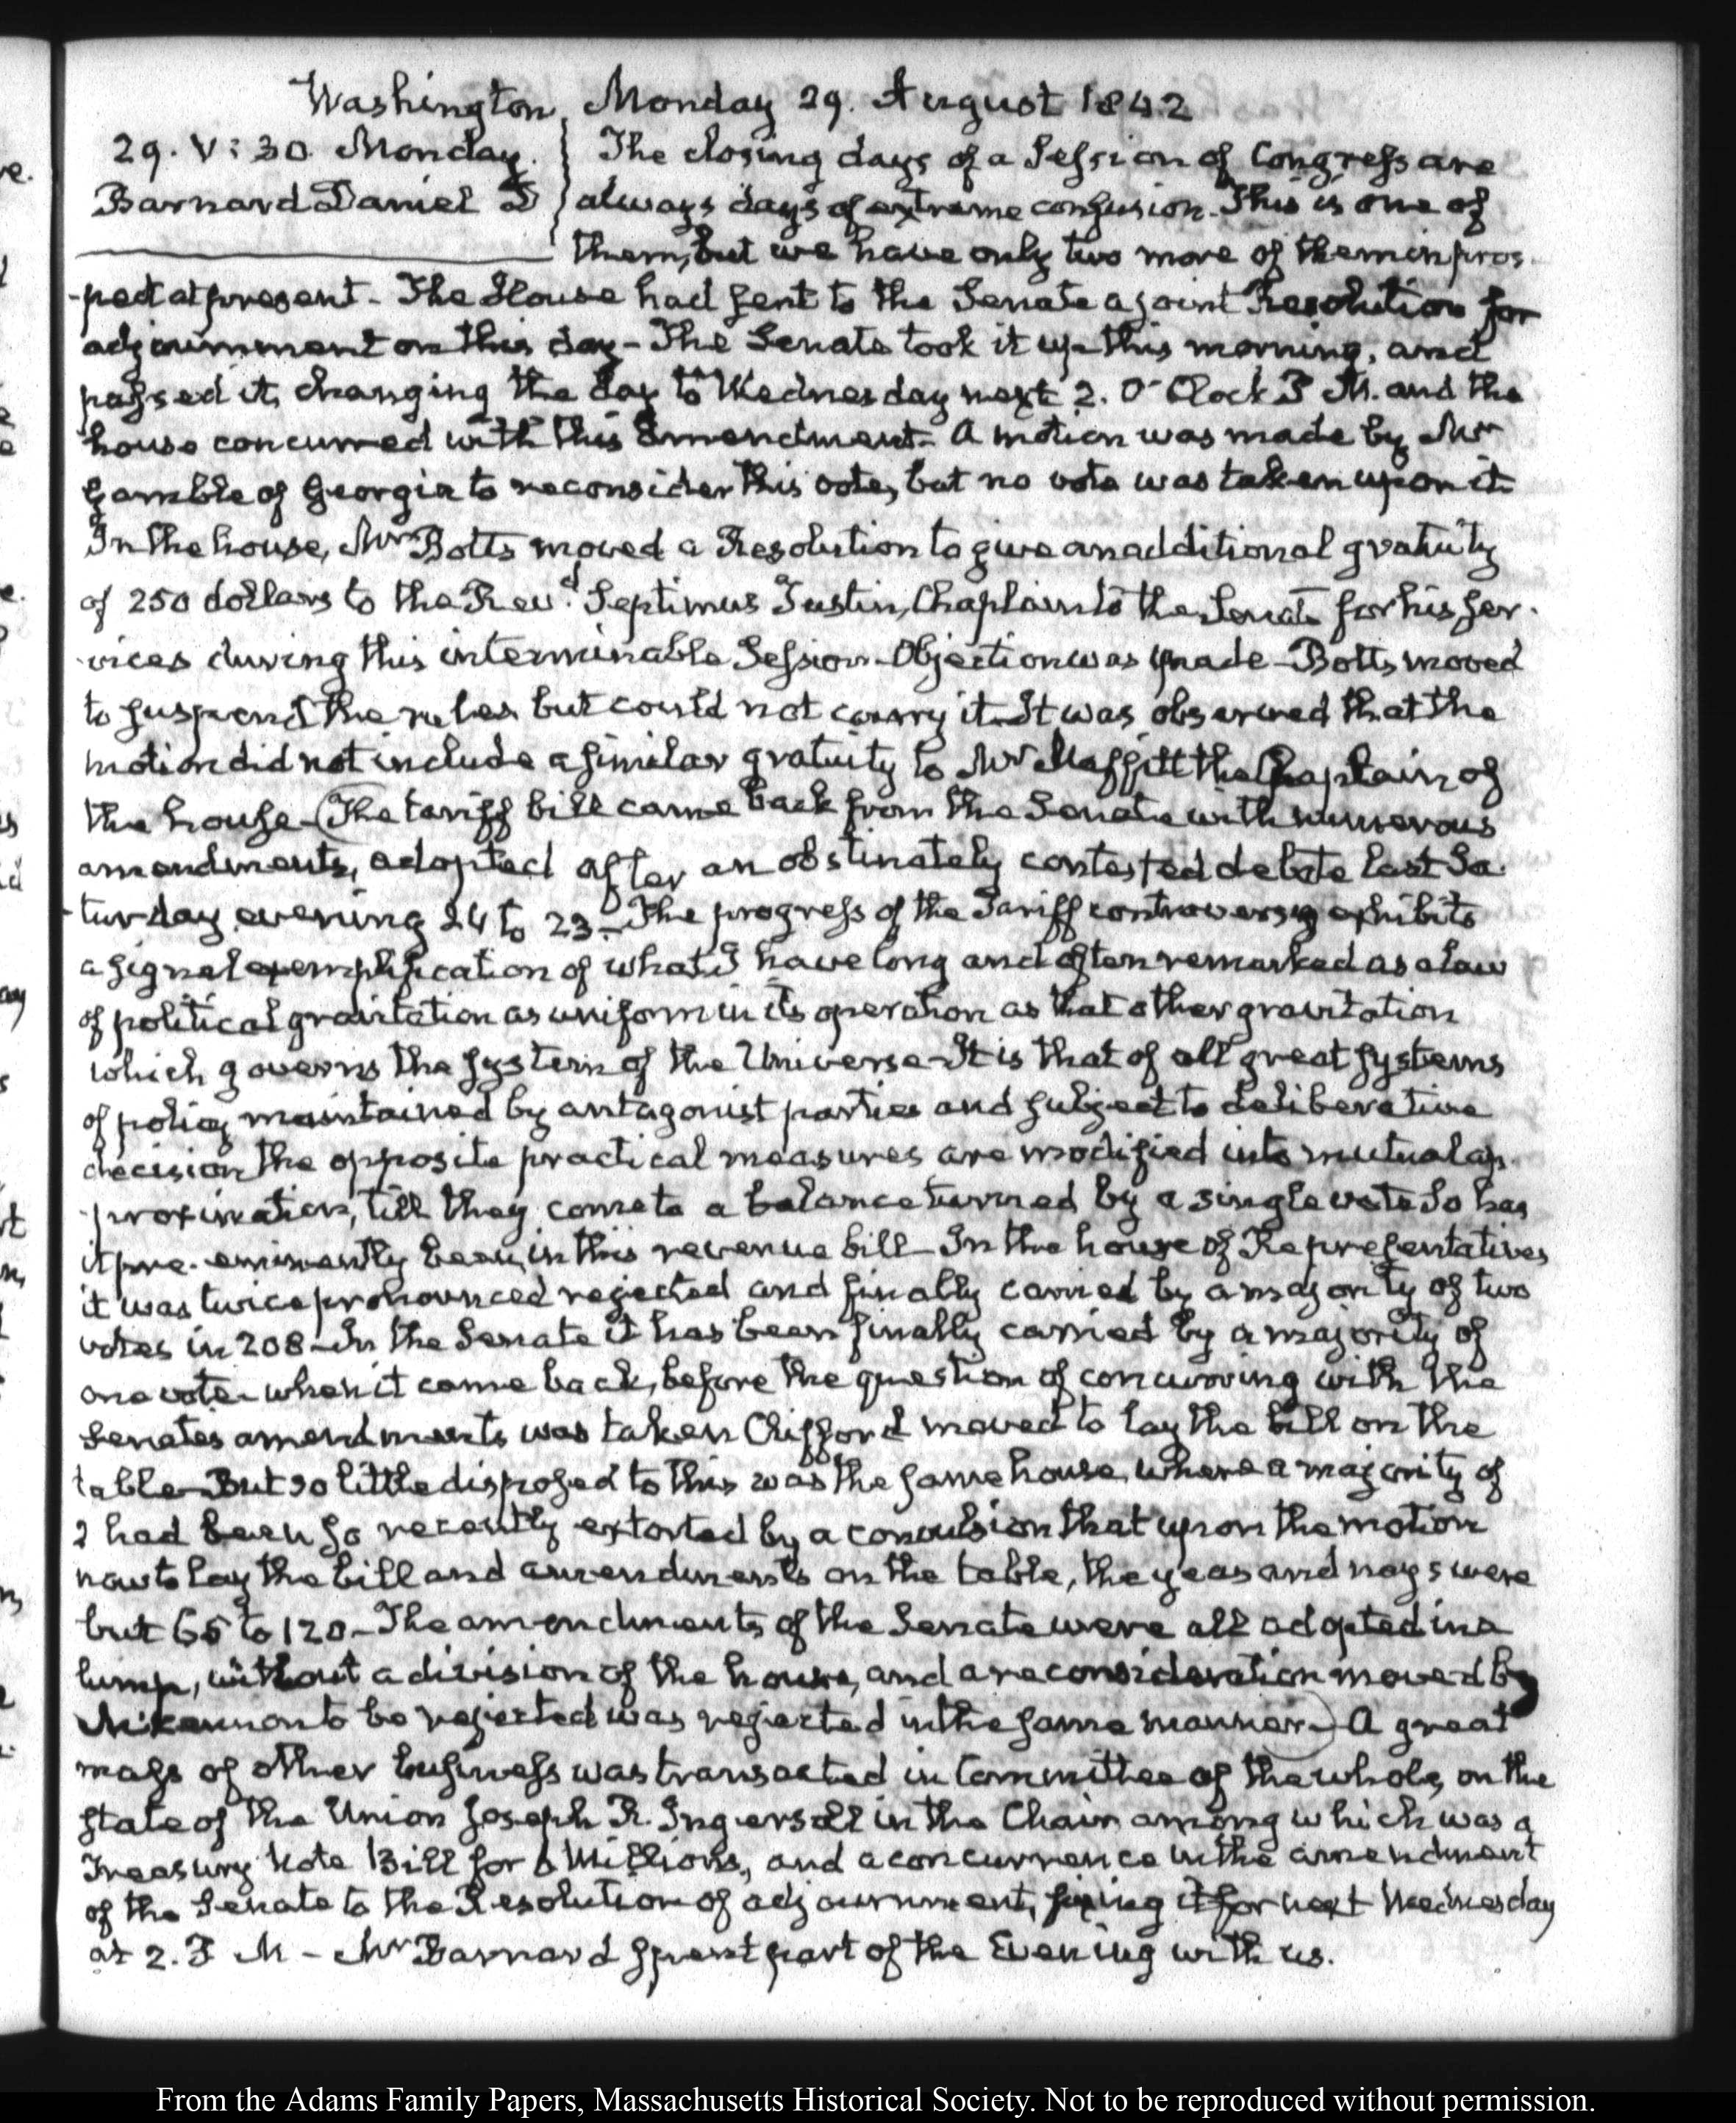 Washington, Monday 29. August 1842
29. V: 30. Monday.
Barnard Daniel D
The closing days of a Session of Congress are
always days of extreme confusion. This is one of
them, but we have only two more of them in pros-
-pect at present - The House had sent to the Senate a joint Resolution for
adjournment on this day - The Senate took it up this morning, and
passed it, changing the day to Wednesday next 2. O'Clock P M. and the
house concurred with this amendment - A motion was made by Mr
Gamble of Georgia to reconsider this vote, but no vote was taken upon it.
In the house, Mr Botts moved a Resolution to give an additional gratuity
of 250 dollars to the Revd. Septimus Tustin, Chaplain to the Senate for his ser-
-vices during this interminable Session - Objection was made - Botts moved
to suspend the rules but could not carry it. It was observed that the
motion did not include a similar gratuity to Mr Maffitt the Chaplain of
the house - (The tariff bill came back from the Senate with numerous
amendments, adopted after an obstinately contested debate last Sa-
-turday evening 24 to 23 - The progress of the Tariff controversy exhibits
a signal exemplification of what I have long and often remarked as a law
of political gravitation as uniform in its operation as that other gravitation
which governs the system of the Universe - It is that of all great systems
of policy maintained by antagonist parties and subject to deliberative
decision the opposite practical measures are modified into mutual ap-
-proximation, till they come to a balance turned by a single vote So has
it pre-eminently been, in this revenue bill - In the house of Representatives,
it was twice pronounced rejected and finally carried by a majority of two
votes in 208 - In the Senate it has been finally carried by a majority of
one vote - when it came back, before the question of concurring with the
Senates amendments was taken Clifford moved to lay the bill on the
table - But so little disposed to this was the same house, where a majority of
2 had been so recently extorted by a convulsion that upon the motion
now to lay the bill and amendments on the table, the yeas and nays were
but 65 to 120 - The amendments of the Senate were all adopted in a
lump, without a division of the house, and a reconsideration moved by
McKennon to be rejected was rejected in the same manner -) A great
mass of other business was transacted in Committee of the whole, on the
state of the Union Joseph R. Ingersoll in the Chair among which was a
Treasury Note Bill for 6 Millions, and a concurrence in the amendment
of the Senate to the Resolution of adjournment, fixing it for next Wednesday
at 2. P M - Mr Barnard spent part of the Evening with us.
From the Adams Family Papers, Massachusetts Historical Society. Not to be reproduced without permission.